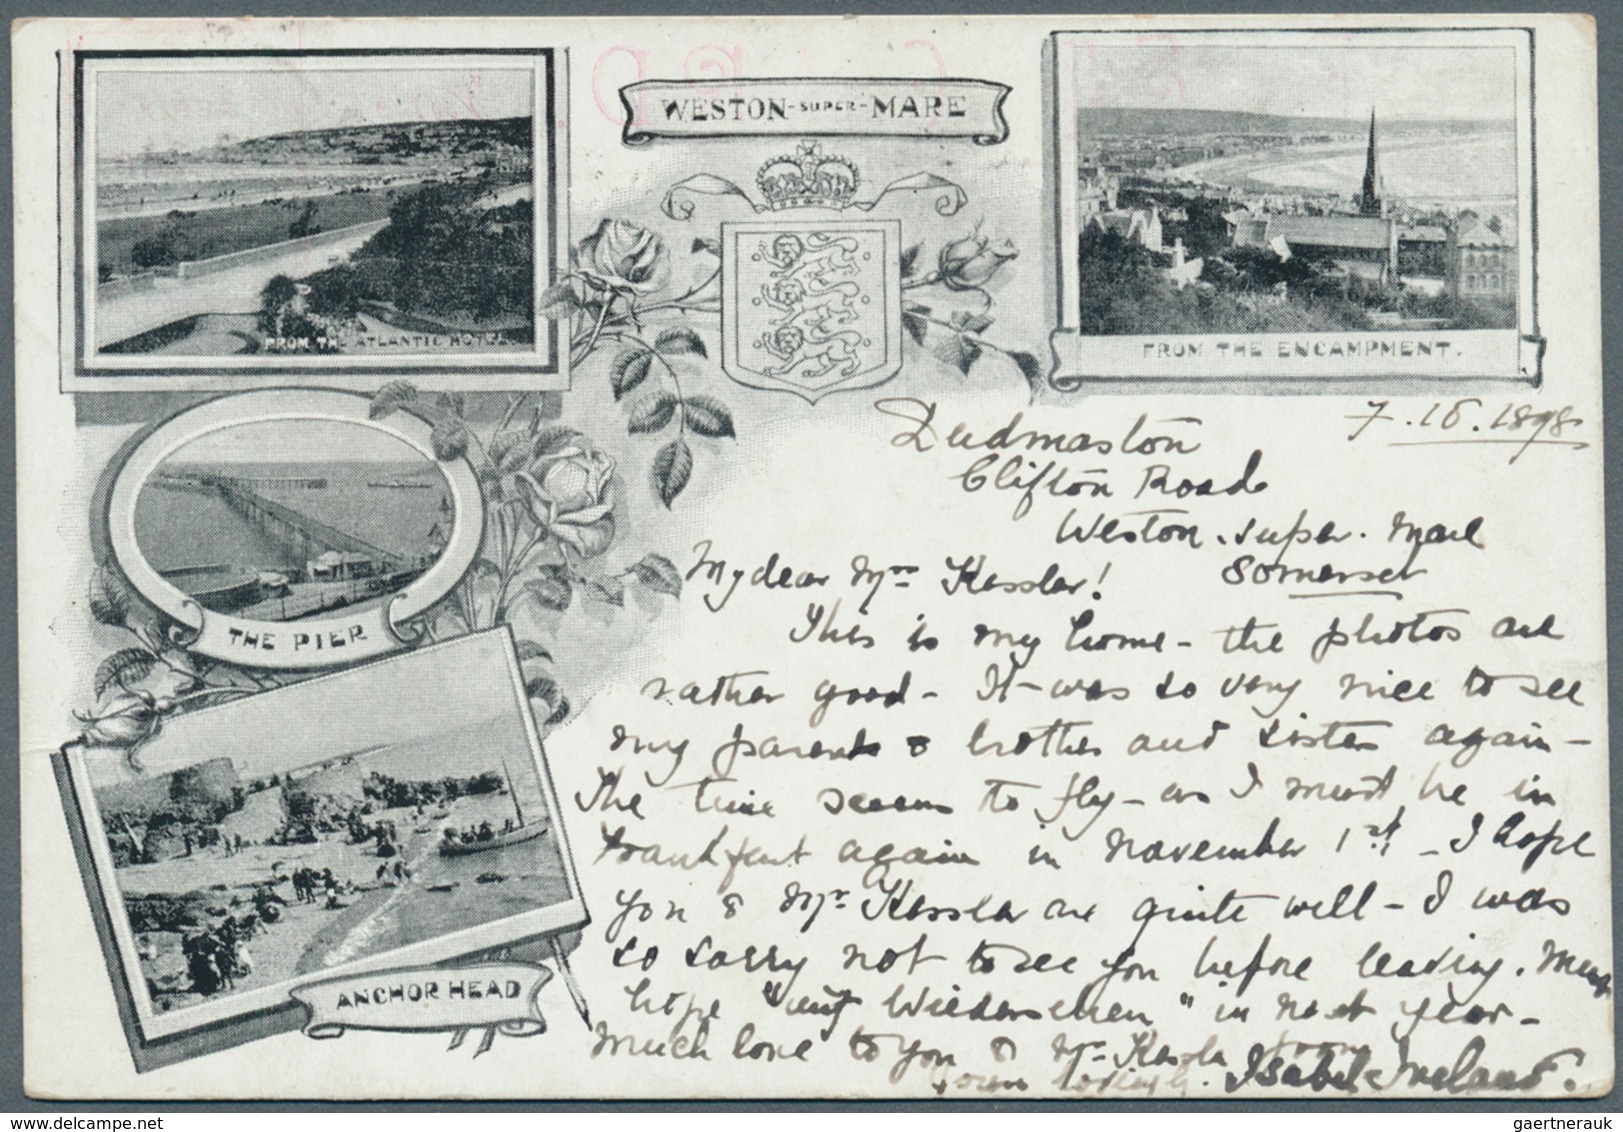 WESTON-SUPER-MARE
FROM THE ATLANTIC HOTEL
FROM THE ENCAMPMENT.
THE PIER
ANCHOR HEAD
7.10.1898
Dudmaston
Clifton Road
Weston.super.Mare
Somerset
My dear Mrs Kessler!
This is my home - the photos are
rather good - It was so very nice to see
my parents & brother and sister again -
The time seems to fly - as I must be in
Frankfurt again in November 1st - I hope
you & Mr. Kessler are quite well - I was
so sorry not to see you before leaving. Many
hope "auf Wiedersehen" in next year -
much love to you & Mr. Kessler from
Isabel Ireland.
delcampe.net
gaertnerauk